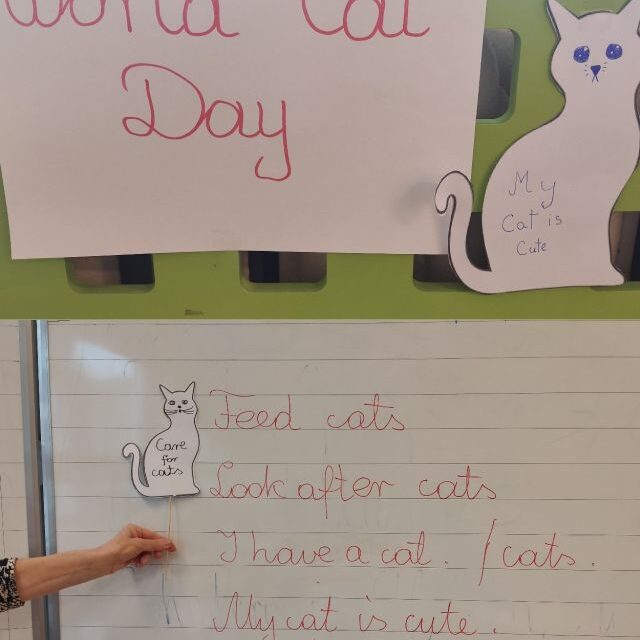 World Cat
Day
My
Cat is
Cute
Care
for
cats
Feed cats
Look after cats
I have a cat. / cats.
My cat is cute.